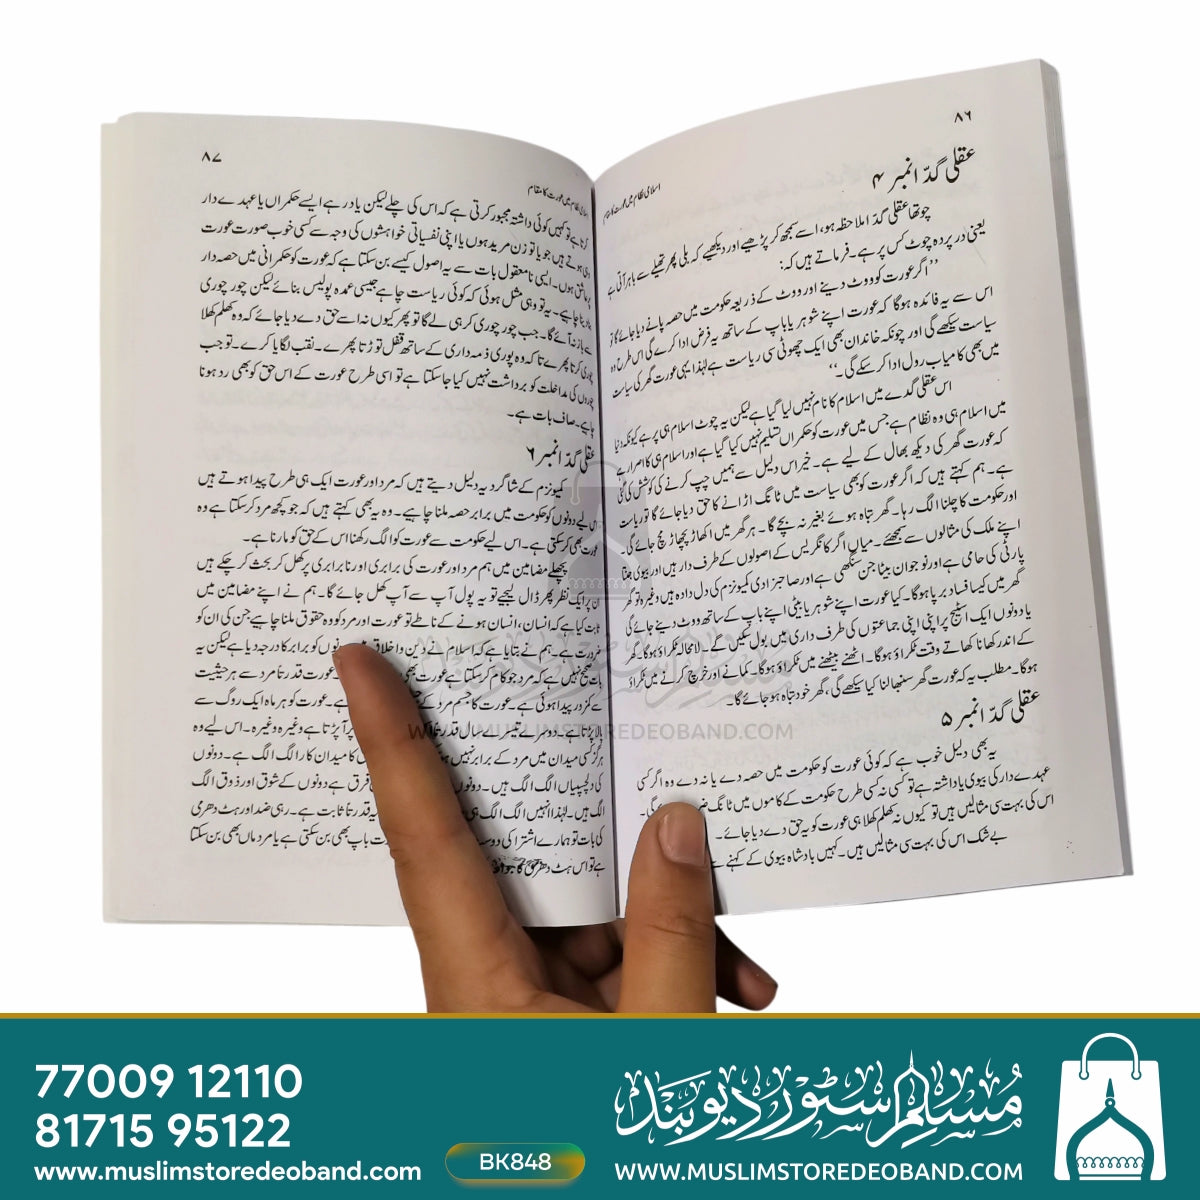 ۸۶
اسلامی نظام میں عورت کا مقام
عقلی گدّا نمبر ۴
چوتھا عقلی گدّا ملاحظہ ہو، اسے سمجھ کر پڑھیے اور دیکھیے کہ بلی پھر تھیلے سے باہر آئی ہے
یعنی در پردہ چوٹ کس پر ہے۔ فرماتے ہیں کہ:
’’اگر عورت کو ووٹ دینے اور ووٹ کے ذریعہ حکومت میں حصہ پانے دیا جائے گا تو
اس سے یہ فائدہ ہوگا کہ عورت اپنے شوہر یا باپ کے ساتھ یہ فرض ادا کرے گی اس طرح وہ
سیاست سیکھے گی اور چونکہ خاندان بھی ایک چھوٹی سی ریاست ہے لہٰذا یہی عورت گھر کی سیاست
میں بھی کامیاب رول ادا کر سکے گی۔‘‘
اس عقلی گدے میں اسلام کا نام نہیں لیا گیا ہے لیکن یہ چوٹ اسلام ہی پر ہے کیونکہ دنیا
میں اسلام ہی وہ نظام ہے جس میں عورت کو حکمراں تسلیم نہیں کیا گیا ہے اور اسلام ہی کا اصرار ہے
کہ عورت گھر کی دیکھ بھال کے لیے ہے۔ خیر اس دلیل سے ہمیں چپ کرنے کی کوشش کی گئی
ہے۔ ہم کہتے ہیں کہ اگر عورت کو بھی سیاست میں ٹانگ اڑانے کا حق دیا جائے گا تو ریاست
اور حکومت کا چلنا الگ رہا۔ گھر تباہ ہوئے بغیر نہ بچے گا۔ ہر گھر میں اکھاڑ پچھاڑ مچ جائے گی۔
اپنے ملک کی مثالوں سے سمجھئے۔ میاں اگر کانگریس کے اصولوں کے طرف دار ہیں اور بیوی جنتا
پارٹی کی حامی ہے اور نوجوان بیٹا جن سنگھی ہے اور صاحبزادی کمیونزم کی دل دادہ ہیں وغیرہ، تو گھر
گھر میں کیسا فساد برپا ہوگا۔ کیا عورت اپنے شوہر یا بیٹی اپنے باپ کے ساتھ ووٹ دینے جائے گی
یا دونوں ایک اسٹیج پر اپنی اپنی جماعتوں کی طرف داری میں بول سکیں گے۔ لامحالہ ٹکراؤ ہوگا۔ گھر
کے اندر کھانا کھاتے وقت ٹکراؤ ہوگا۔ اٹھنے بیٹھنے میں ٹکراؤ ہوگا۔ کمانے اور خرچ کرنے میں ٹکراؤ
ہوگا۔ مطلب یہ کہ عورت گھر سنبھالنا کیا سیکھے گی، گھر خود تباہ ہو جائے گا۔
عقلی گدّا نمبر ۵
یہ بھی دلیل خوب ہے کہ کوئی عورت کو حکومت میں حصہ دے یا نہ دے وہ اگر کسی
عہدے دار کی بیوی یا داشتہ ہے تو کسی نہ کسی طرح حکومت کے کاموں میں ٹانگ گی۔
اس کی بہت سی مثالیں ہیں تو کیوں نہ کھلم کھلا ہی عورت کو یہ حق دے دیا جائے۔
بے شک اس کی بہت سی مثالیں ہیں۔ کہیں بادشاہ بیوی کے کہنے
۸۷
اسلامی نظام میں عورت کا مقام
کرتا ہے تو کہیں کوئی داشتہ مجبور کرتی ہے کہ اس کی چلے لیکن یاد رہے ایسے حکمراں یا عہدے دار
وہی ہوتے ہیں جو یا تو زن مرید ہوں یا اپنی نفسیاتی خواہشوں کی وجہ سے کسی خوب صورت عورت
پر عاشق ہوں۔ ایسی نامعقول بات سے یہ اصول کیسے بن سکتا ہے کہ عورت کو حکمرانی میں حصہ دار
بنا دینا چاہیے۔ یہ تو وہی مثل ہوئی کہ کوئی ریاست چاہے جیسی عمدہ پولیس بنائے لیکن چور چوری
سے باز نہ آئے گا۔ جب چور چوری کر ہی لے گا تو پھر کیوں نہ اسے حق دے دیا جائے کہ وہ کھلم کھلا
چوری کرتا پھرے تاکہ وہ پوری ذمہ داری کے ساتھ قفل توڑتا پھرے۔ نقب لگایا کرے۔ تو جب
چوروں کی مداخلت کو برداشت نہیں کیا جا سکتا ہے تو اسی طرح عورت کے اس حق کو بھی رد ہونا
چاہیے۔ صاف بات ہے۔
عقلی گدّا نمبر ۶
کمیونزم کے شاگرد یہ دلیل دیتے ہیں کہ مرد اور عورت ایک ہی طرح پیدا ہوتے ہیں
اس لیے دونوں کو حکومت میں برابر حصہ ملنا چاہیے۔ وہ یہ بھی کہتے ہیں کہ جو کچھ مرد کر سکتا ہے وہ
عورت بھی کر سکتی ہے۔ اس لیے حکومت سے عورت کو الگ رکھنا اس کے حق کو مارنا ہے۔
پچھلے مضامین میں ہم مرد اور عورت کی برابری اور نابرابری پر کھل کر بحث کر چکے ہیں
ان پر ایک نظر پھر ڈال لیجیے تو یہ پول آپ سے آپ کھل جائے گا۔ ہم نے اپنے مضامین میں
ثابت کیا ہے کہ انسان، انسان ہونے کے ناطے تو عورت اور مرد کو وہ حقوق ملنا چاہیے جن کی ان کو
ضرورت ہے۔ ہم نے بتایا ہے کہ اسلام نے دین و اخلاق نوں کو برابر کا درجہ دیا ہے لیکن یہ
بات صحیح نہیں ہے کہ مرد جو کام کر سکتا ہے عورت بھی عورت قدرتاً مرد سے ہر حیثیت
سے کمزور پیدا ہوئی ہے۔ عورت کا جسم مرد کے ہے۔ عورت کو ہر ماہ ایک روگ سے
پالا پڑتا ہے۔ دوسرے تیسرے سال قدرتاً پر آ پڑتا ہے وغیرہ وغیرہ۔ اس لیے وہ
ہرگز کسی میدان میں مرد کے برابر نہیں کا میدان کار الگ الگ ہے۔ دونوں
کی دلچسپیاں الگ الگ ہیں۔ دونوں فرق ہے دونوں کے شوق اور ذوق الگ
الگ ہیں۔ لہٰذا انہیں الگ الگ ہی یہ قدرتاً ثابت ہے۔ رہی ضد اور ہٹ دھرمی
کی بات تو ہمارے اشتراکی دوست باپ بھی بن سکتی ہے یا مرد ماں بھی بن سکتا
ہے تو اس ہٹ دھرمی کا جواب
WWW.MUSLIMSTOREDEOBAND.COM
77009 12110
81715 95122
www.muslimstoredeoband.com
BK848
مسلم سٹور دیوبند
WWW.MUSLIMSTOREDEOBAND.COM